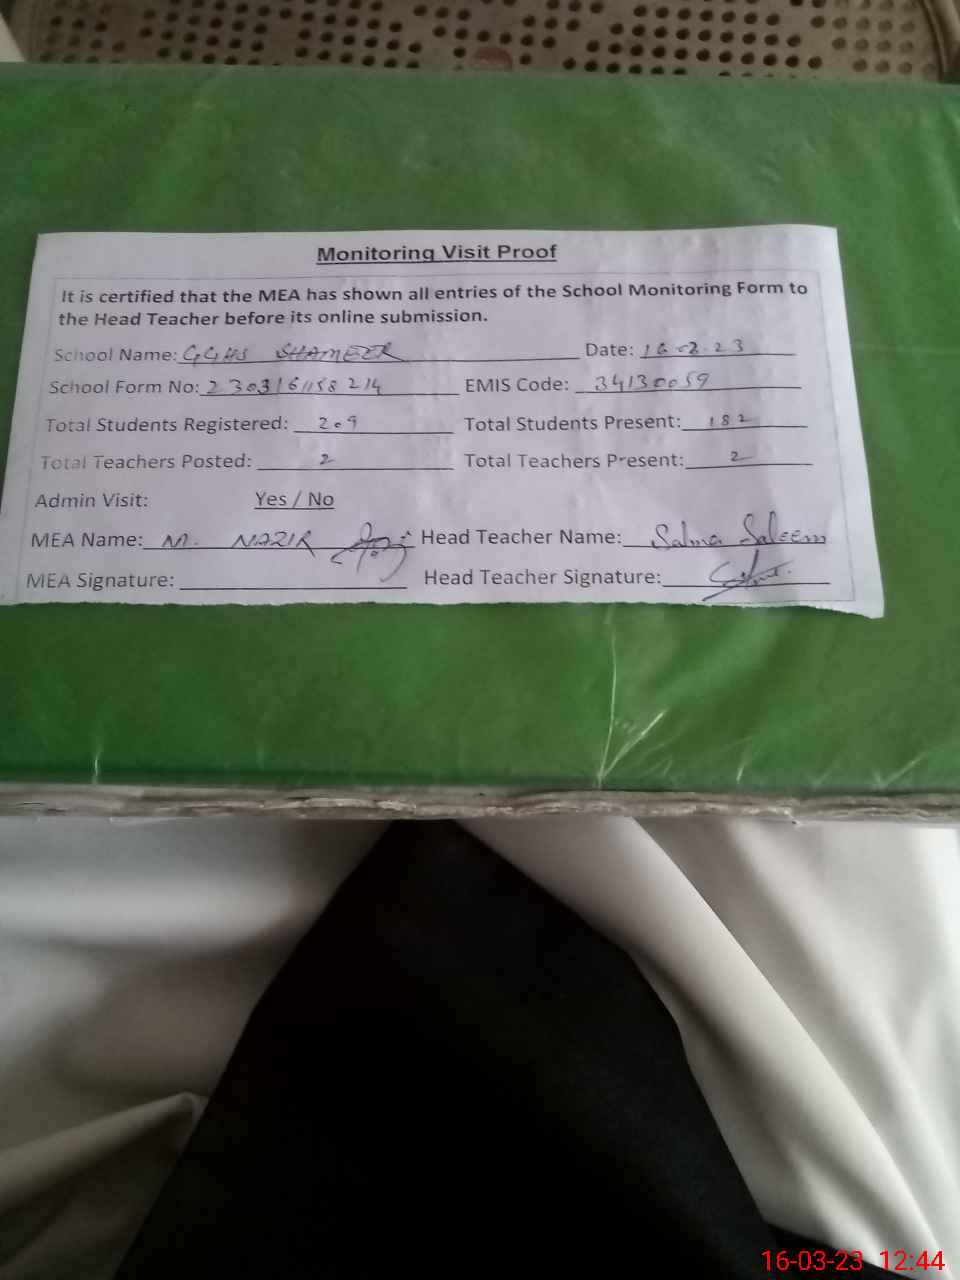 Monitoring Visit Proof
It is certified that the MEA has shown all entries of the School Monitoring Form to
the Head Teacher before its online submission.
School Name: GGHS SHAMEER Date: 16-03-23
School Form No: 2303161158214 EMIS Code: 34130059
Total Students Registered: 209 Total Students Present: 182
Total Teachers Posted: 2 Total Teachers Present: 2
Admin Visit: Yes / No
MEA Name: M. NAZIR Head Teacher Name: Salma Saleem
MEA Signature: Head Teacher Signature:
16-03-23 12:44